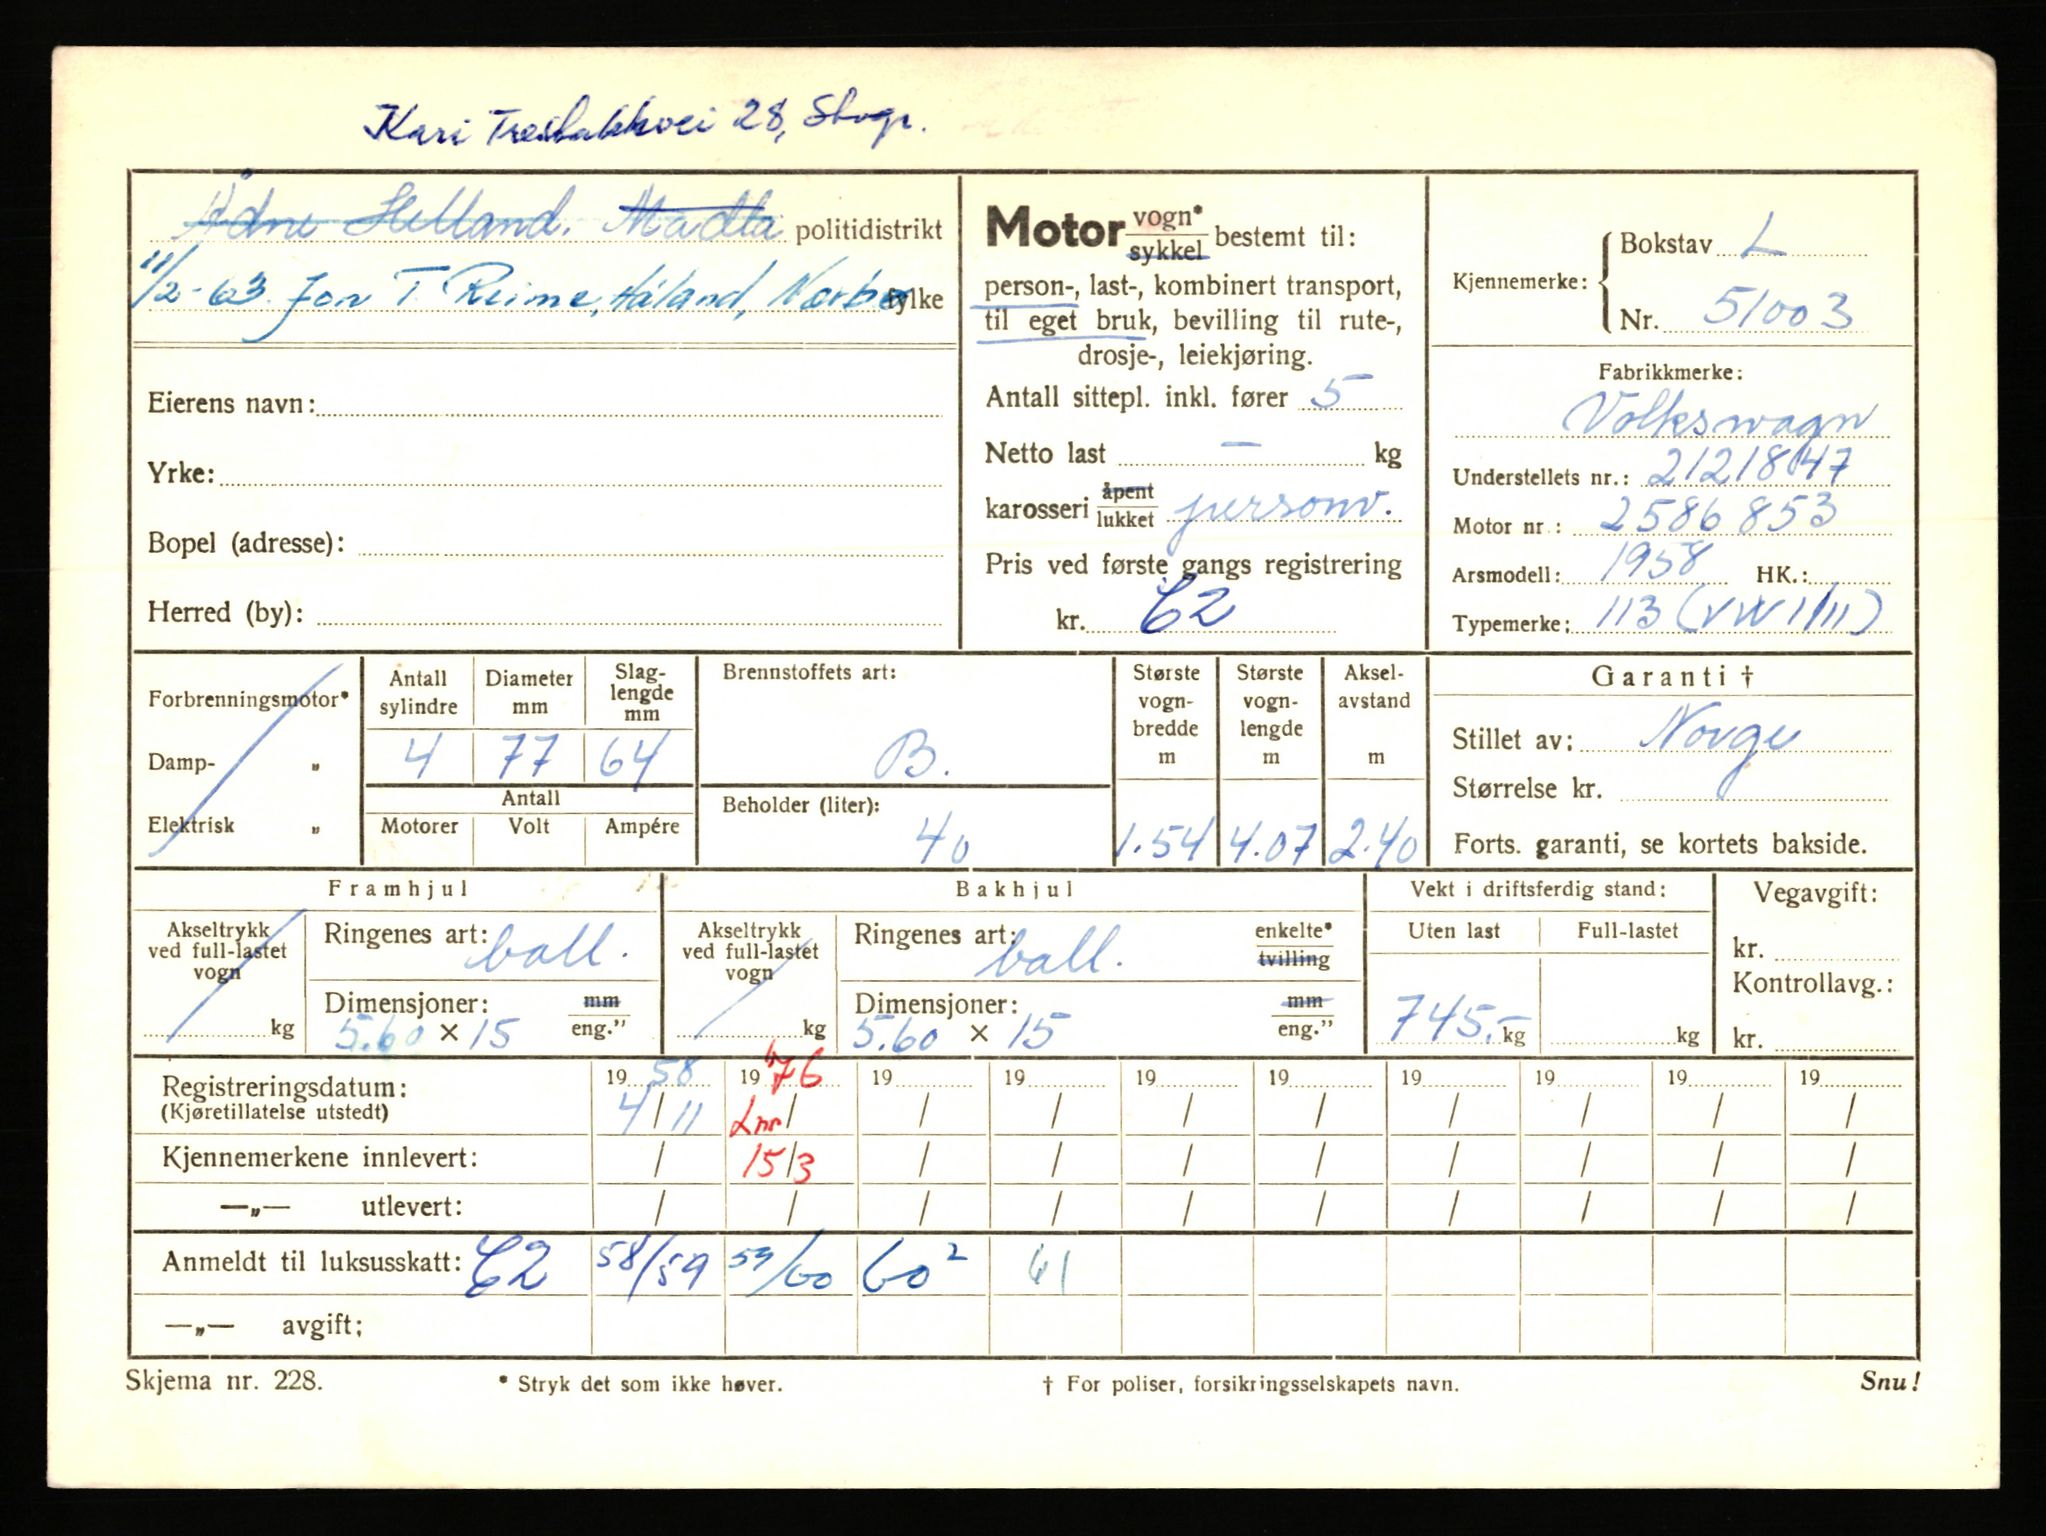 Kari Tresbakkvei 28, Stvgr.
Ådne Helland. Madla politidistrikt
11/2-63. Jon T. Reime, Håland, Nærbø fylke
Eierens navn:
Yrke:
Bopel (adresse):
Herred (by):
Motor vogn* sykkel bestemt til:
person-, last-, kombinert transport,
til eget bruk, bevilling til rute-,
drosje-, leiekjøring.
Antall sittepl. inkl. fører 5
Netto last — kg
karosseri åpent lukket personv.
Pris ved første gangs registrering
kr. C2
Kjennemerke: Bokstav L
Nr. 51003
Fabrikkmerke:
Volkswagn
Understellets nr.: 2121847
Motor nr.: 2586853
Årsmodell: 1958 HK.:
Typemerke: 113 (VW 1/11)
Forbrenningsmotor*
Damp- „
Elektrisk „
Antall sylindre
4
Diameter mm
77
Slag-lengde mm
64
Antall
Motorer Volt Ampére
Brennstoffets art:
B.
Beholder (liter):
40
Største vogn-bredde m
1.54
Største vogn-lengde m
4.07
Aksel-avstand m
2.40
Garanti †
Stillet av: Norge
Størrelse kr.
Forts. garanti, se kortets bakside.
Framhjul
Akseltrykk ved full-lastet vogn
kg
Ringenes art: ball.
Dimensjoner: mm
5.60 × 15 eng.”
Bakhjul
Akseltrykk ved full-lastet vogn
kg
Ringenes art: ball. enkelte* tvilling
Dimensjoner: mm
5.60 × 15 eng.”
Vekt i driftsferdig stand:
Uten last Full-lastet
745.- kg kg
Vegavgift:
kr.
Kontrollavg.:
kr.
Registreringsdatum: 19 58 19 76 19 19 19 19 19 19 19 19
(Kjøretillatelse utstedt) 4/11 Lnr / / / / / / / / /
Kjennemerkene innlevert: / 15/3 / / / / / / / /
—„— utlevert: / / / / / / / / / /
Anmeldt til luksusskatt: C2 58/59 59/60 60² 61
—„— avgift:
Skjema nr. 228. * Stryk det som ikke høver. † For poliser, forsikringsselskapets navn. Snu!